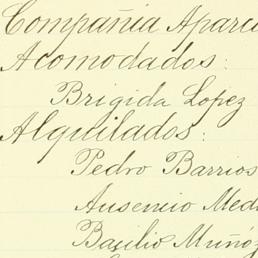 Compañia Aparic
Acomodados:
Brigida Lopez
Alquilados:
Pedro Barrios
Ausencio Med
Basilio Muñoz